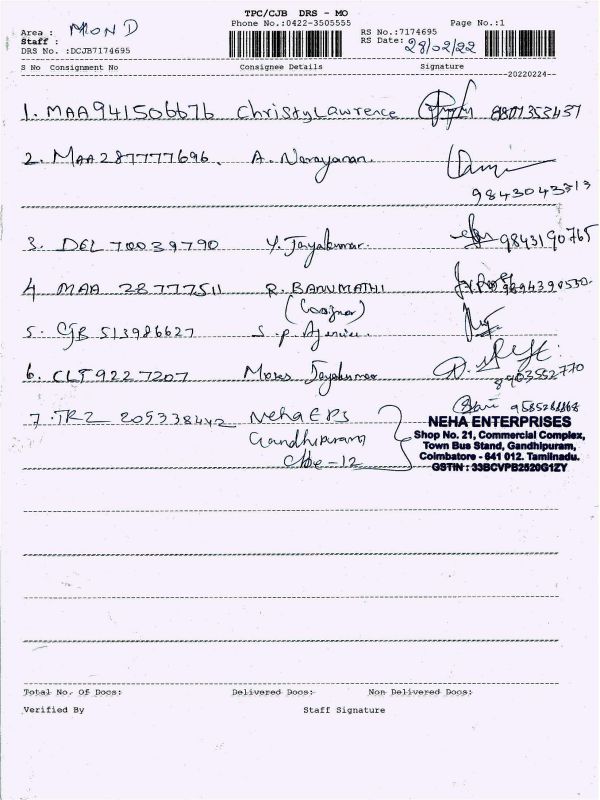 TPC/CJB DRS - MO
Phone No.:0422-3505555
Page No.:1
Area : MON D
Staff :
DRS No. :DCJB7174695
RS No.:7174695
RS Date: 28/02/22
S No Consignment No Consignee Details Signature
20220224
1. MAA941506676 Christy Lawrence 8807353437
2. MAA287777696. A. Narayanan.
9843043313
3. DEL 70039790 Y. Jayakumar. 9843190765
4 MAA 28777511 R. BANUMATHI 9894390530
5. CJB 513986627 S. P. Agencies.
6. CLT 9227207 Moses Jayakumar
8903552770
7. TRZ 205338442 Neha EPS
Gandhipuram
Cbe-12
NEHA ENTERPRISES
Shop No. 21, Commercial Complex,
Town Bus Stand, Gandhipuram,
Coimbatore - 641 012. Tamilnadu.
GSTIN : 33BCVPB2520G1ZY
Total No. Of Docs: Delivered Docs: Non Delivered Docs:
Verified By Staff Signature